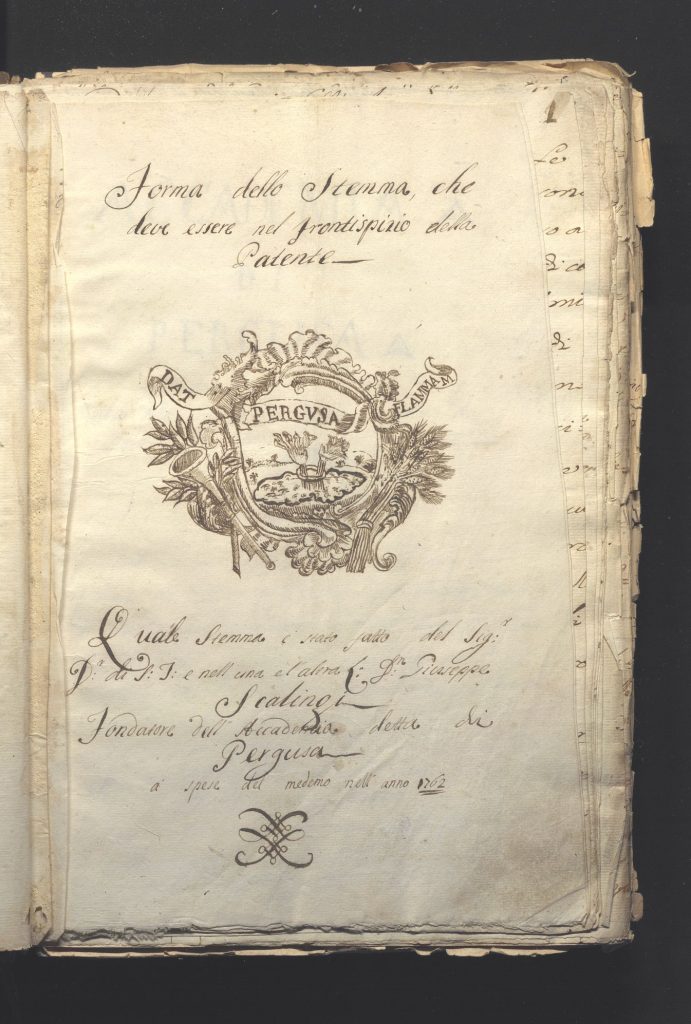 1
Forma dello Stemma, che
deve essere nel frontispizio della
Patente
DAT
PERGVSA
FLAMMAM
Quale Stemma è stato fatto del Sig.r
D.r di S: T: e nell'una e l'altra L: D.n Giuseppe
Scalingi
Fondatore dell'Accademia detta di
Pergusa
a' spese del medemo nell'anno 1762
Le
con
di